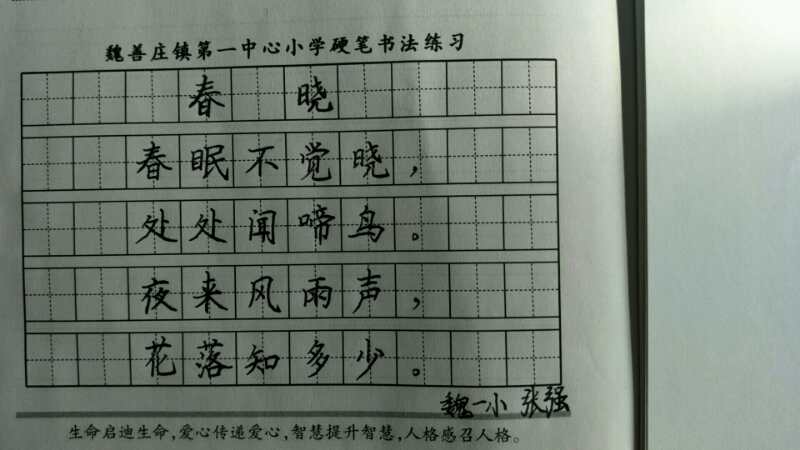 魏善庄镇第一中心小学硬笔书法练习
春晓
春眠不觉晓，
处处闻啼鸟。
夜来风雨声，
花落知多少。
魏一小 张强
生命启迪生命，爱心传递爱心，智慧提升智慧，人格感召人格。